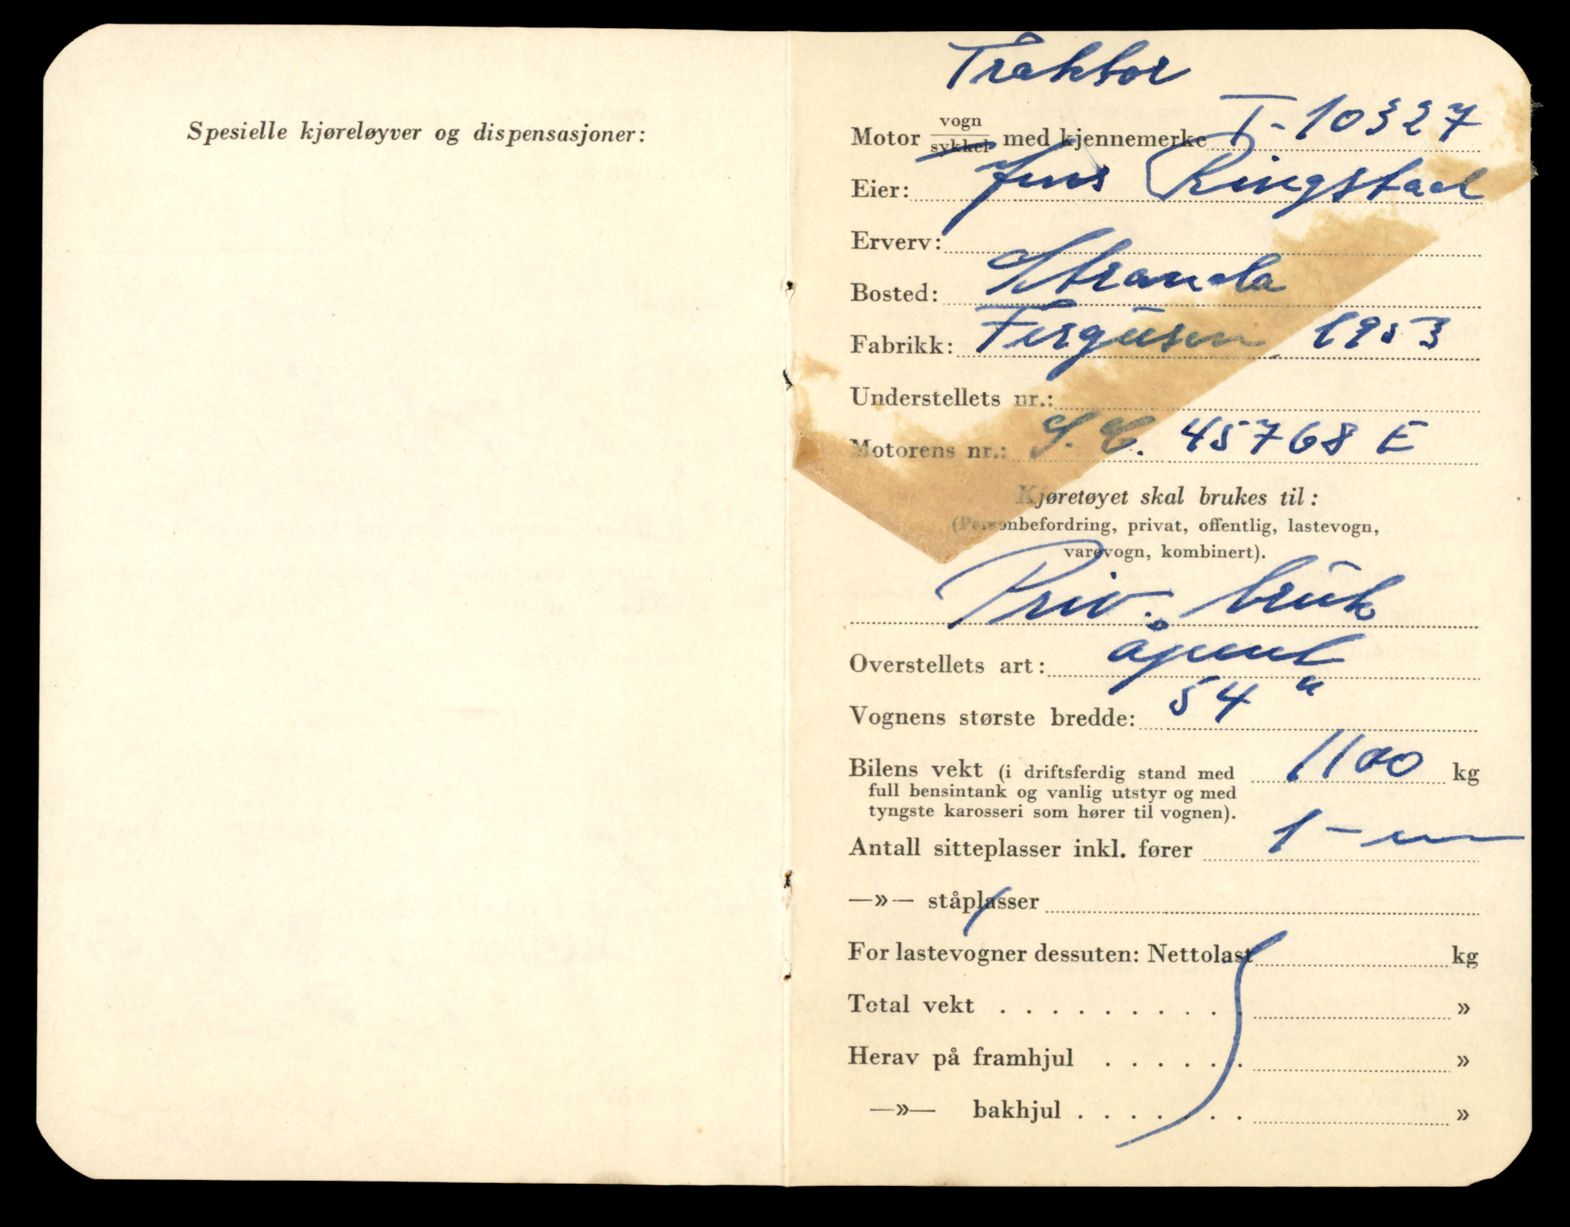 Spesielle kjøreløyver og dispensasjoner:
Traktor
Motor vogn/sykkel med kjennemerke T-10327
Eier: Jens Ringstad
Erverv:
Bosted: Stranda
Fabrikk: Ferguson 1953
Understellets nr.:
Motorens nr.: S.E. 45768 E
Kjøretøyet skal brukes til:
(Personbefordring, privat, offentlig, lastevogn,
varevogn, kombinert).
Priv. bruk
Overstellets art: åpent
Vognens største bredde: 54 "
Bilens vekt (i driftsferdig stand med 1100 kg
full bensintank og vanlig utstyr og med
tyngste karosseri som hører til vognen).
Antall sitteplasser inkl. fører 1 -
—»— ståplasser
For lastevogner dessuten: Nettolast kg
Total vekt . . . . . . . . . . »
Herav på framhjul . . . . . . »
—»— bakhjul . . . . . . . »